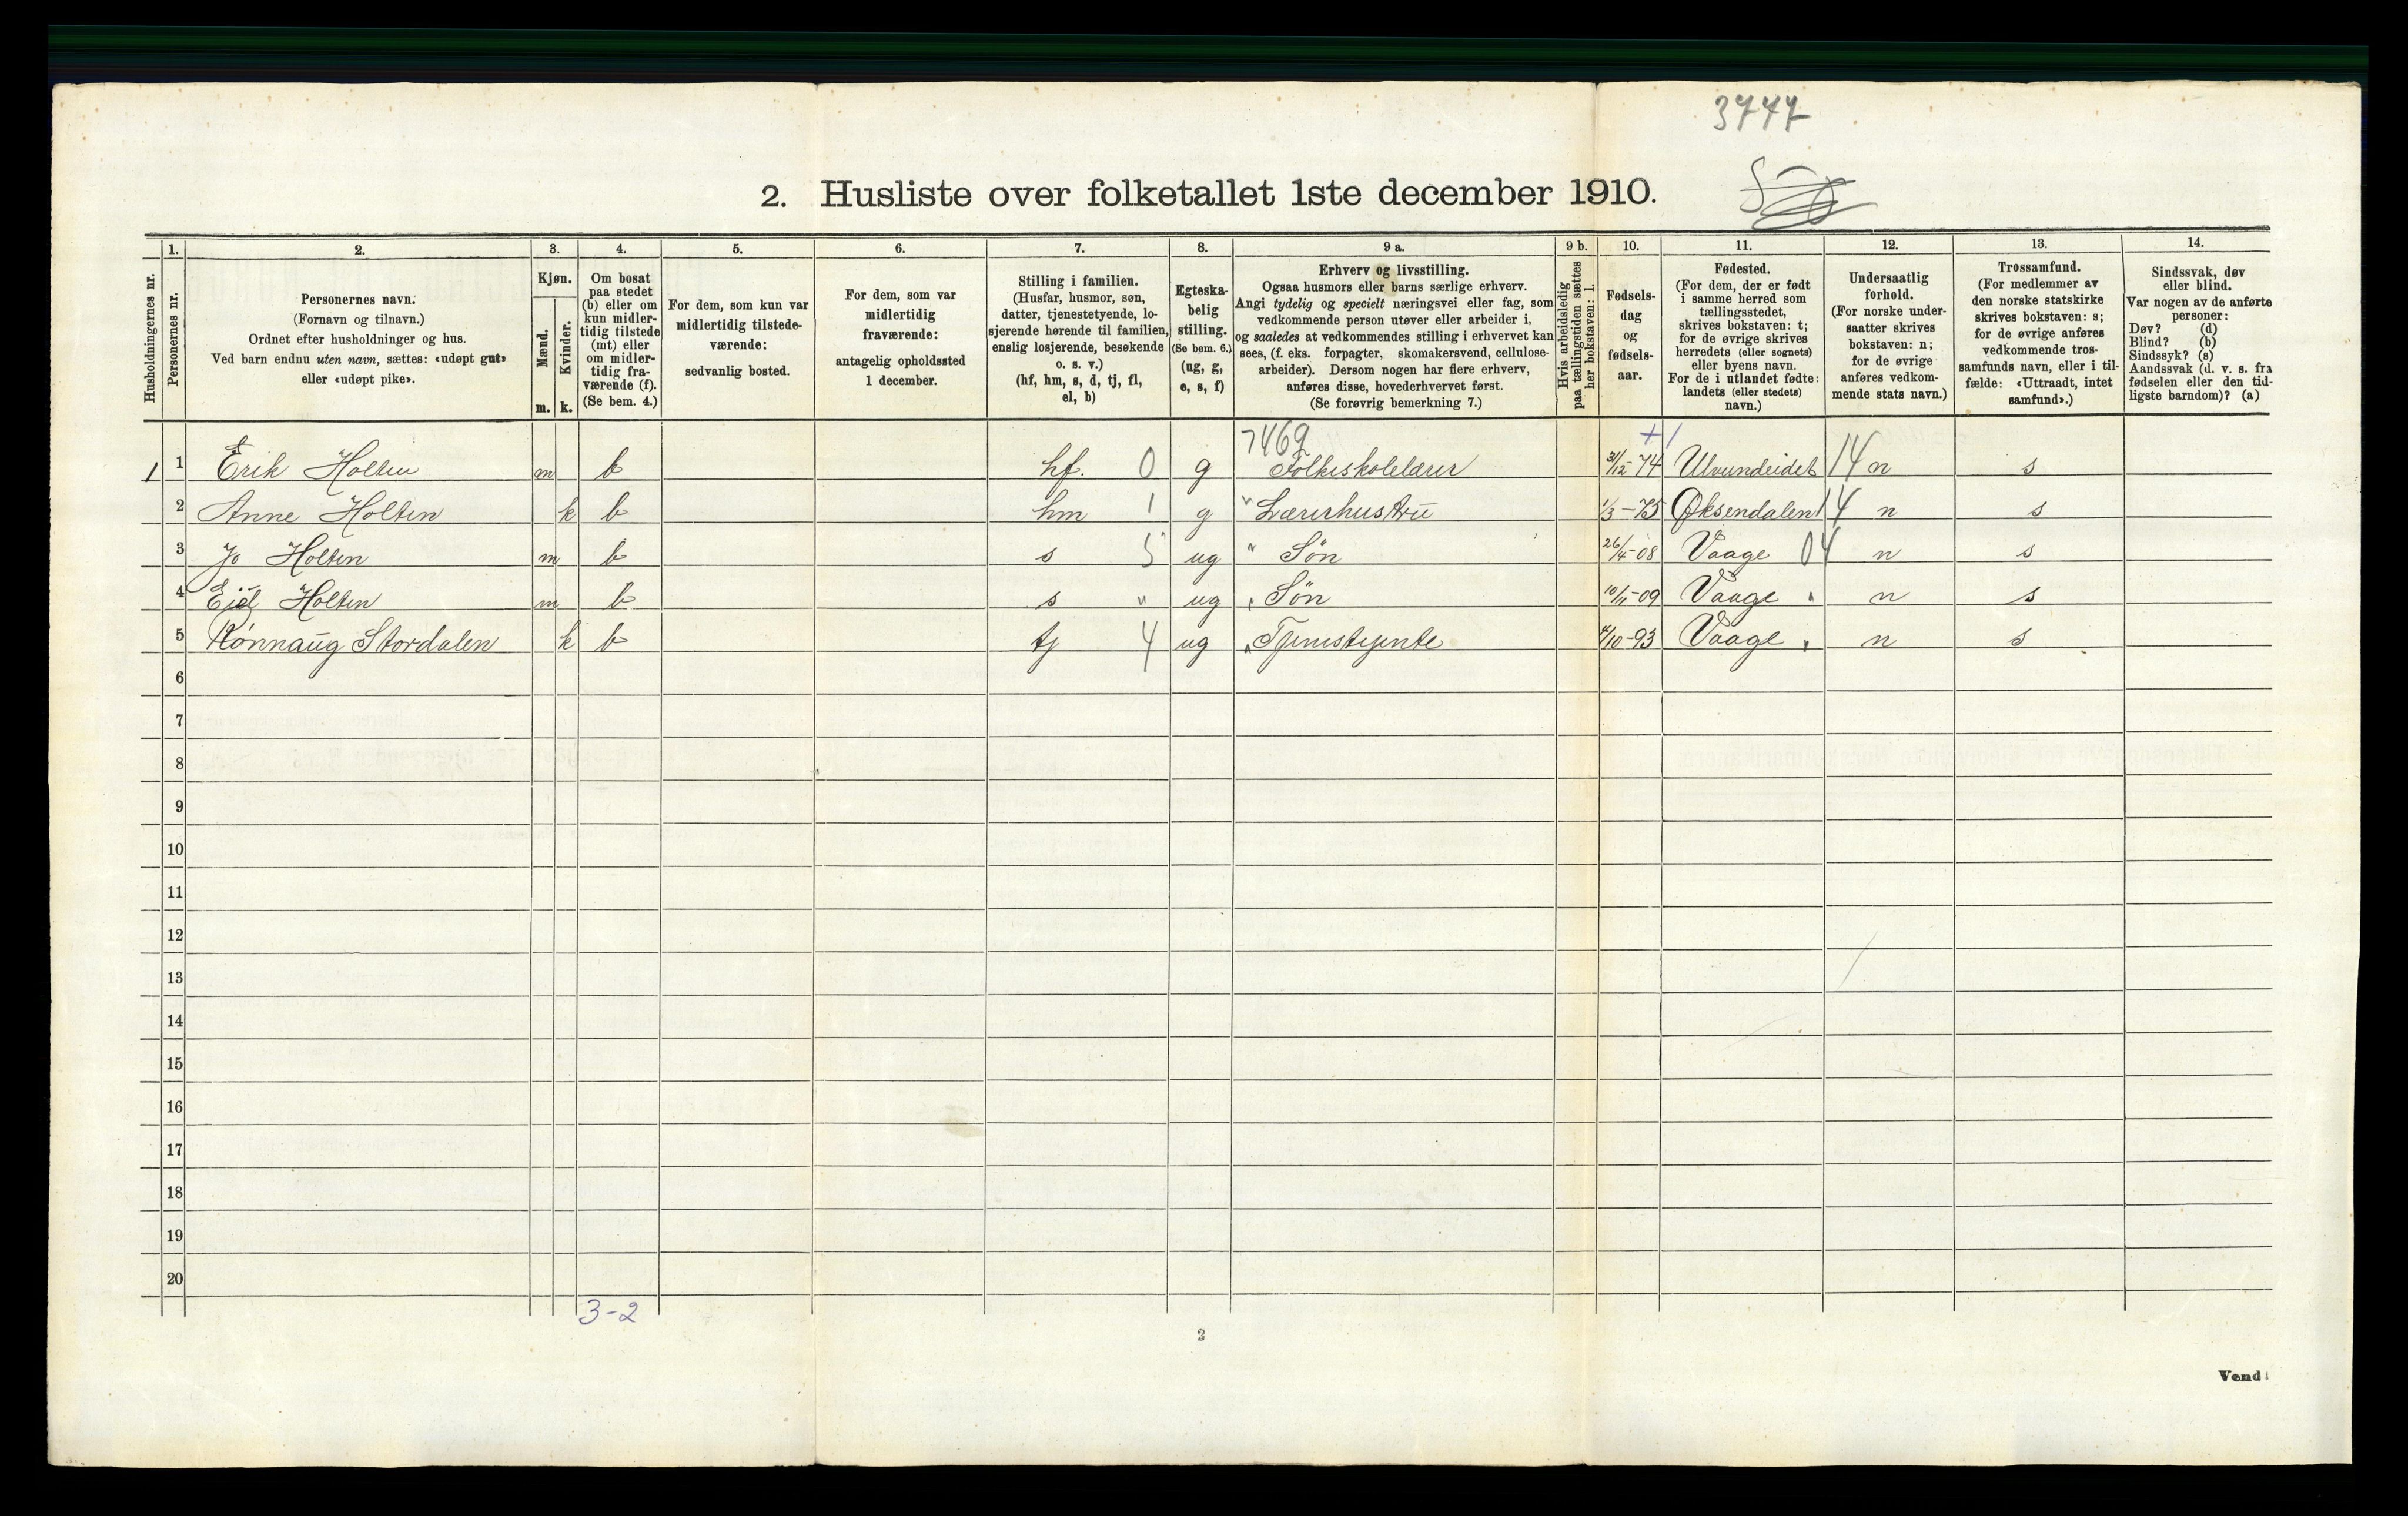 3747
2. Husliste over folketallet 1ste december 1910.
Husholdningernes nr.
1.
Personernes nr.
2.
Personernes navn.
(Fornavn og tilnavn.)
Ordnet efter husholdninger og hus.
Ved barn endnu uten navn, sættes: «udøpt gut»
eller «udøpt pike».
3.
Kjøn.
Mænd.
Kvinder.
m. k.
4.
Om bosat
paa stedet
(b) eller om
kun midler-
tidig tilstede
(mt) eller
om midler-
tidig fra-
værende (f).
(Se bem. 4.)
5.
For dem, som kun var
midlertidig tilstede-
værende:
sedvanlig bosted.
6.
For dem, som var
midlertidig
fraværende:
antagelig opholdssted
1 december.
7.
Stilling i familien.
(Husfar, husmor, søn,
datter, tjenestetyende, lo-
sjerende hørende til familien,
enslig losjerende, besøkende
o. s. v.)
(hf, hm, s, d, tj, fl,
el, b)
8.
Egteska-
belig
stilling.
(Se bem. 6.)
(ug, g,
e, s, f)
9 a.
Erhverv og livsstilling.
Ogsaa husmors eller barns særlige erhverv.
Angi tydelig og specielt næringsvei eller fag, som
vedkommende person utøver eller arbeider i,
og saaledes at vedkommendes stilling i erhvervet kan
sees, (f. eks. forpagter, skomakersvend, cellulose-
arbeider). Dersom nogen har flere erhverv,
anføres disse, hovederhvervet først.
(Se forøvrig bemerkning 7.)
9 b.
Hvis arbeidsledig
paa tællingstiden sættes
her bokstaven: l.
10.
Fødsels-
dag
og
fødsels-
aar.
11.
Fødested.
(For dem, der er født
i samme herred som
tællingsstedet,
skrives bokstaven: t;
for de øvrige skrives
herredets (eller sognets)
eller byens navn.
For de i utlandet fødte:
landets (eller stedets)
navn.)
12.
Undersaatlig
forhold.
(For norske under-
saatter skrives
bokstaven: n;
for de øvrige
anføres vedkom-
mende stats navn.)
13.
Trossamfund.
(For medlemmer av
den norske statskirke
skrives bokstaven: s;
for de øvrige anføres
vedkommende tros-
samfunds navn, eller i til-
fælde: «Uttraadt, intet
samfund».)
14.
Sindssvak, døv
eller blind.
Var nogen av de anførte
personer:
Døv? (d)
Blind? (b)
Sindssyk? (s)
Aandssvak (d. v. s. fra
fødselen eller den tid-
ligste barndom)? (a)
7469 +1
1 1 Erik Holten m b hf. 0 g Folkeskolelærer 31/12-74 Ulvundeidet 14 n s
2 Anne Holten k b hm 1 g " Lærerhustru 1/3-75 Øksendalen 14 n s
3 Jo Holten m b s 5 ug " Søn 26/4-08 Vaage 04 n s
4 Eiel Holten m b s " ug " Søn 10/11-09 Vaage " n s
5 Rønnaug Stordalen k b tj 4 ug " Tjenestejente 4/10-93 Vaage " n s
6
7
8
9
10
11
12
13
14
15
16
17
18
19
20
3-2
2
Vend!